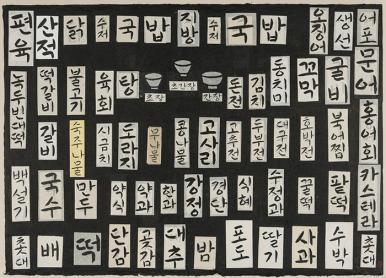 편육 산적 닭 수저 국 밥 지방 수저 국 밥 생선 어포 문어
녹두빈대떡 떡갈비 불고기 육회 탕 초장 초간장 간장 돈전 김치 동치미 꼬막 굴비 홍어회
갈비 숙주나물 시금치 도라지 무나물 콩나물 고사리 고추전 두부전 대구전 호박전 북어찜
백설기 국수 만두 약식 약과 한과 강정 경단 식혜 수정과 꿀떡 팥떡 카스테라
촛대 배 떡 단감 곶감 대추 밤 포도 딸기 사과 수박 촛대